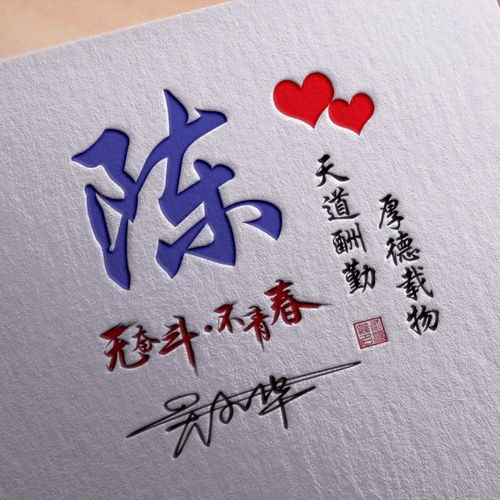 陈
厚德载物
天道酬勤
无奋斗·不青春